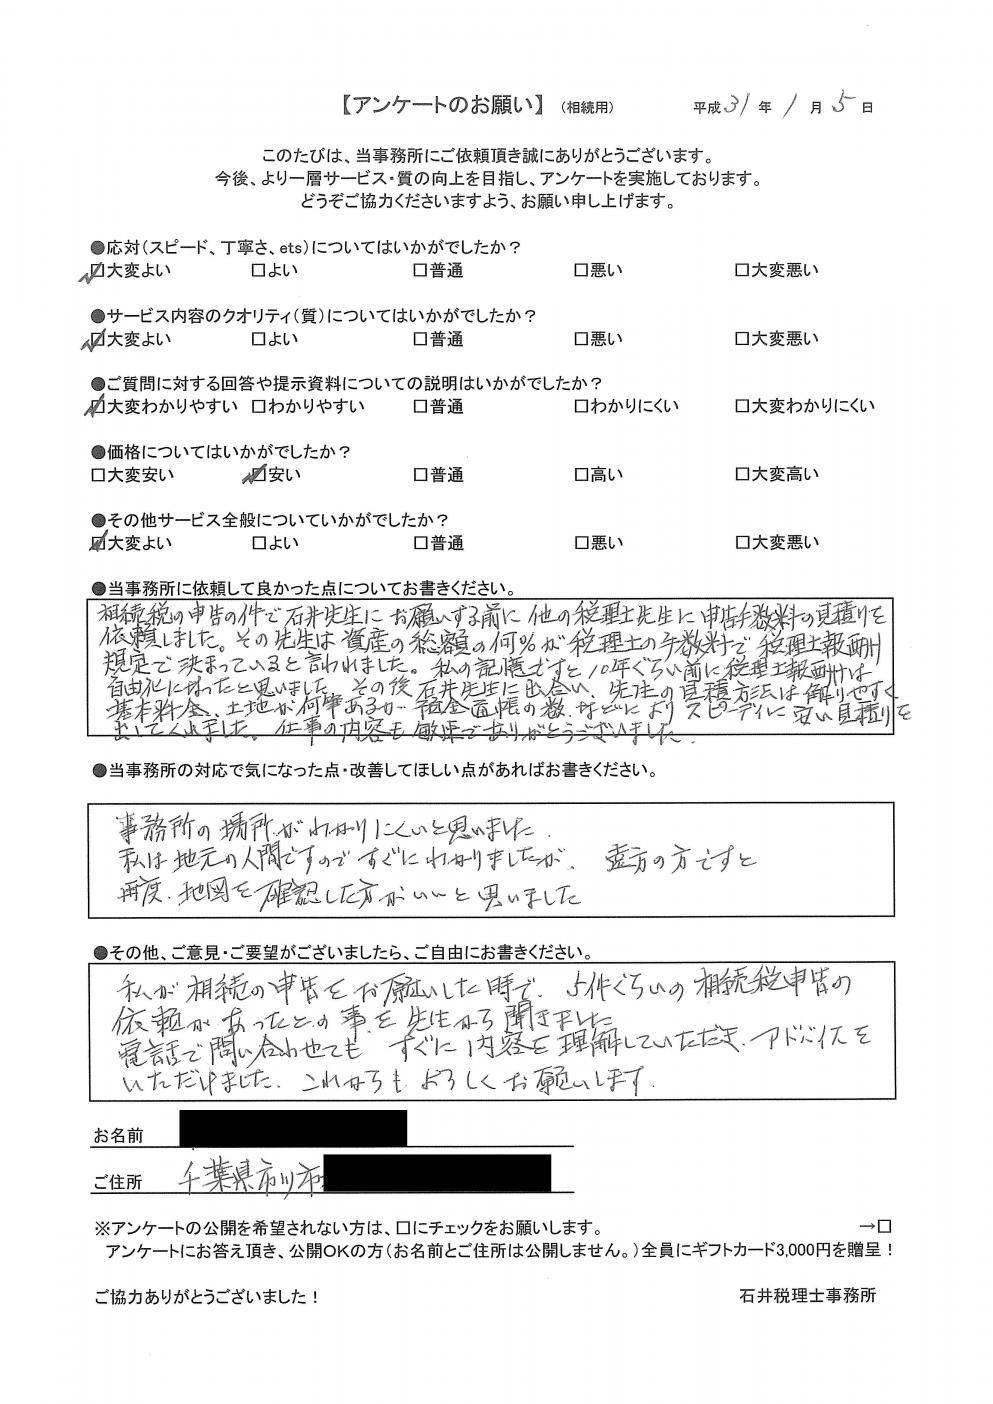 【アンケートのお願い】（相続用） 平成31年1月5日
このたびは、当事務所にご依頼頂き誠にありがとうございます。
今後、より一層サービス・質の向上を目指し、アンケートを実施しております。
どうぞご協力くださいますよう、お願い申し上げます。
●応対（スピード、丁寧さ、ets）についてはいかがでしたか？
☑大変よい □よい □普通 □悪い □大変悪い
●サービス内容のクオリティ（質）についてはいかがでしたか？
☑大変よい □よい □普通 □悪い □大変悪い
●ご質問に対する回答や提示資料についての説明はいかがでしたか？
☑大変わかりやすい □わかりやすい □普通 □わかりにくい □大変わかりにくい
●価格についてはいかがでしたか？
□大変安い ☑安い □普通 □高い □大変高い
●その他サービス全般についていかがでしたか？
☑大変よい □よい □普通 □悪い □大変悪い
●当事務所に依頼して良かった点についてお書きください。
相続税の申告の件で石井先生にお願いする前に他の税理士先生に申告手数料の見積りを
依頼しました。その先生は資産の総額の何%が税理士の手数料で税理士報酬
規定で決まっていると言われました。私の記憶ですと10年ぐらい前に税理士報酬は
自由化になったと思いました。その後石井先生に出会い、先生の見積方法は解りやすく
基本料金、土地が何筆あるか 預金通帳の数、などによりスピーディに安い見積りを
出してくれました。仕事の内容も敏速でありがとうございました。
●当事務所の対応で気になった点・改善してほしい点があればお書きください。
事務所の場所がわかりにくいと思いました.
私は地元の人間ですのですぐにわかりましたが、遠方の方ですと
再度、地図を確認した方がいいと思いました
●その他、ご意見・ご要望がございましたら、ご自由にお書きください。
私が相続の申告をお願いした時で、5件ぐらいの相続税申告の
依頼があったとの事を先生から聞きました
電話で問い合わせても すぐに内容を理解していただき、アドバイスを
いただけました。これからもよろしくお願いします.
お名前
ご住所 千葉県市川市
※アンケートの公開を希望されない方は、□にチェックをお願いします。 →□
アンケートにお答え頂き、公開OKの方（お名前とご住所は公開しません。）全員にギフトカード3,000円を贈呈！
ご協力ありがとうございました！ 石井税理士事務所